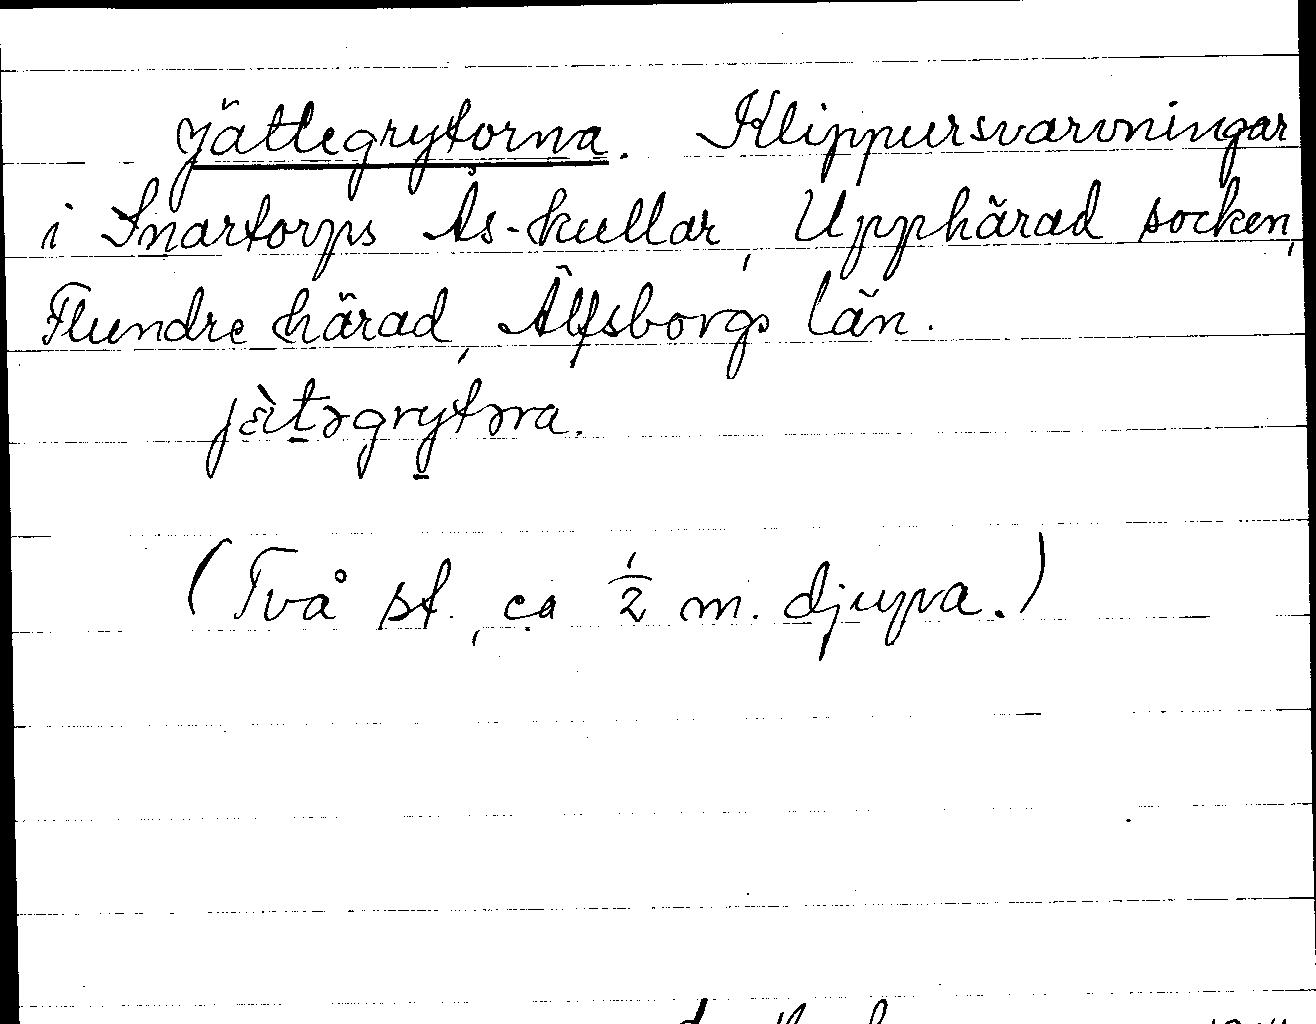 Jättegrytorna. Klippursvarvningar
i Snartorps Ås-kullar, Upphärad socken,
Flundre härad, Älfsborgs län.
jètəgrytəra.
(Två st., ca 1/2 m. djupa.)